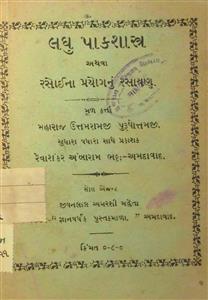 લઘુ પાકશાસ્ત્ર
અથવા
રસોઈના પ્રયોગનું રસાયણ.
મુળ કર્તા
મહારાજ ઉત્તમરામજી પુરૂષોત્તમજી.
સુધારા વધારા સાથે પ્રકાશક
રેવાશંકર અંબારામ ભટ્ટ:–અમદાવાદ.
સોલ એજન્ટ
જીવનલાલ અમરશી મહેતા
"જ્ઞાનવર્ધક પુસ્તકમાળા" અમદાવાદ.
કિંમત ૦-૮-૦